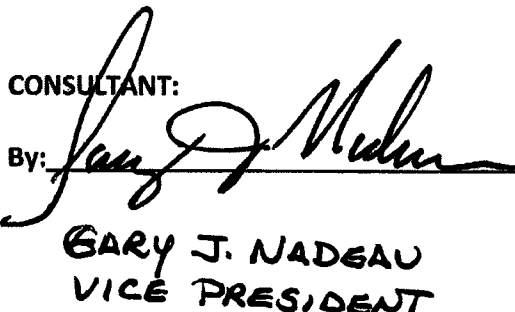 CONSULTANT:
By: Gary J Nadeau
GARY J. NADEAU
VICE PRESIDENT